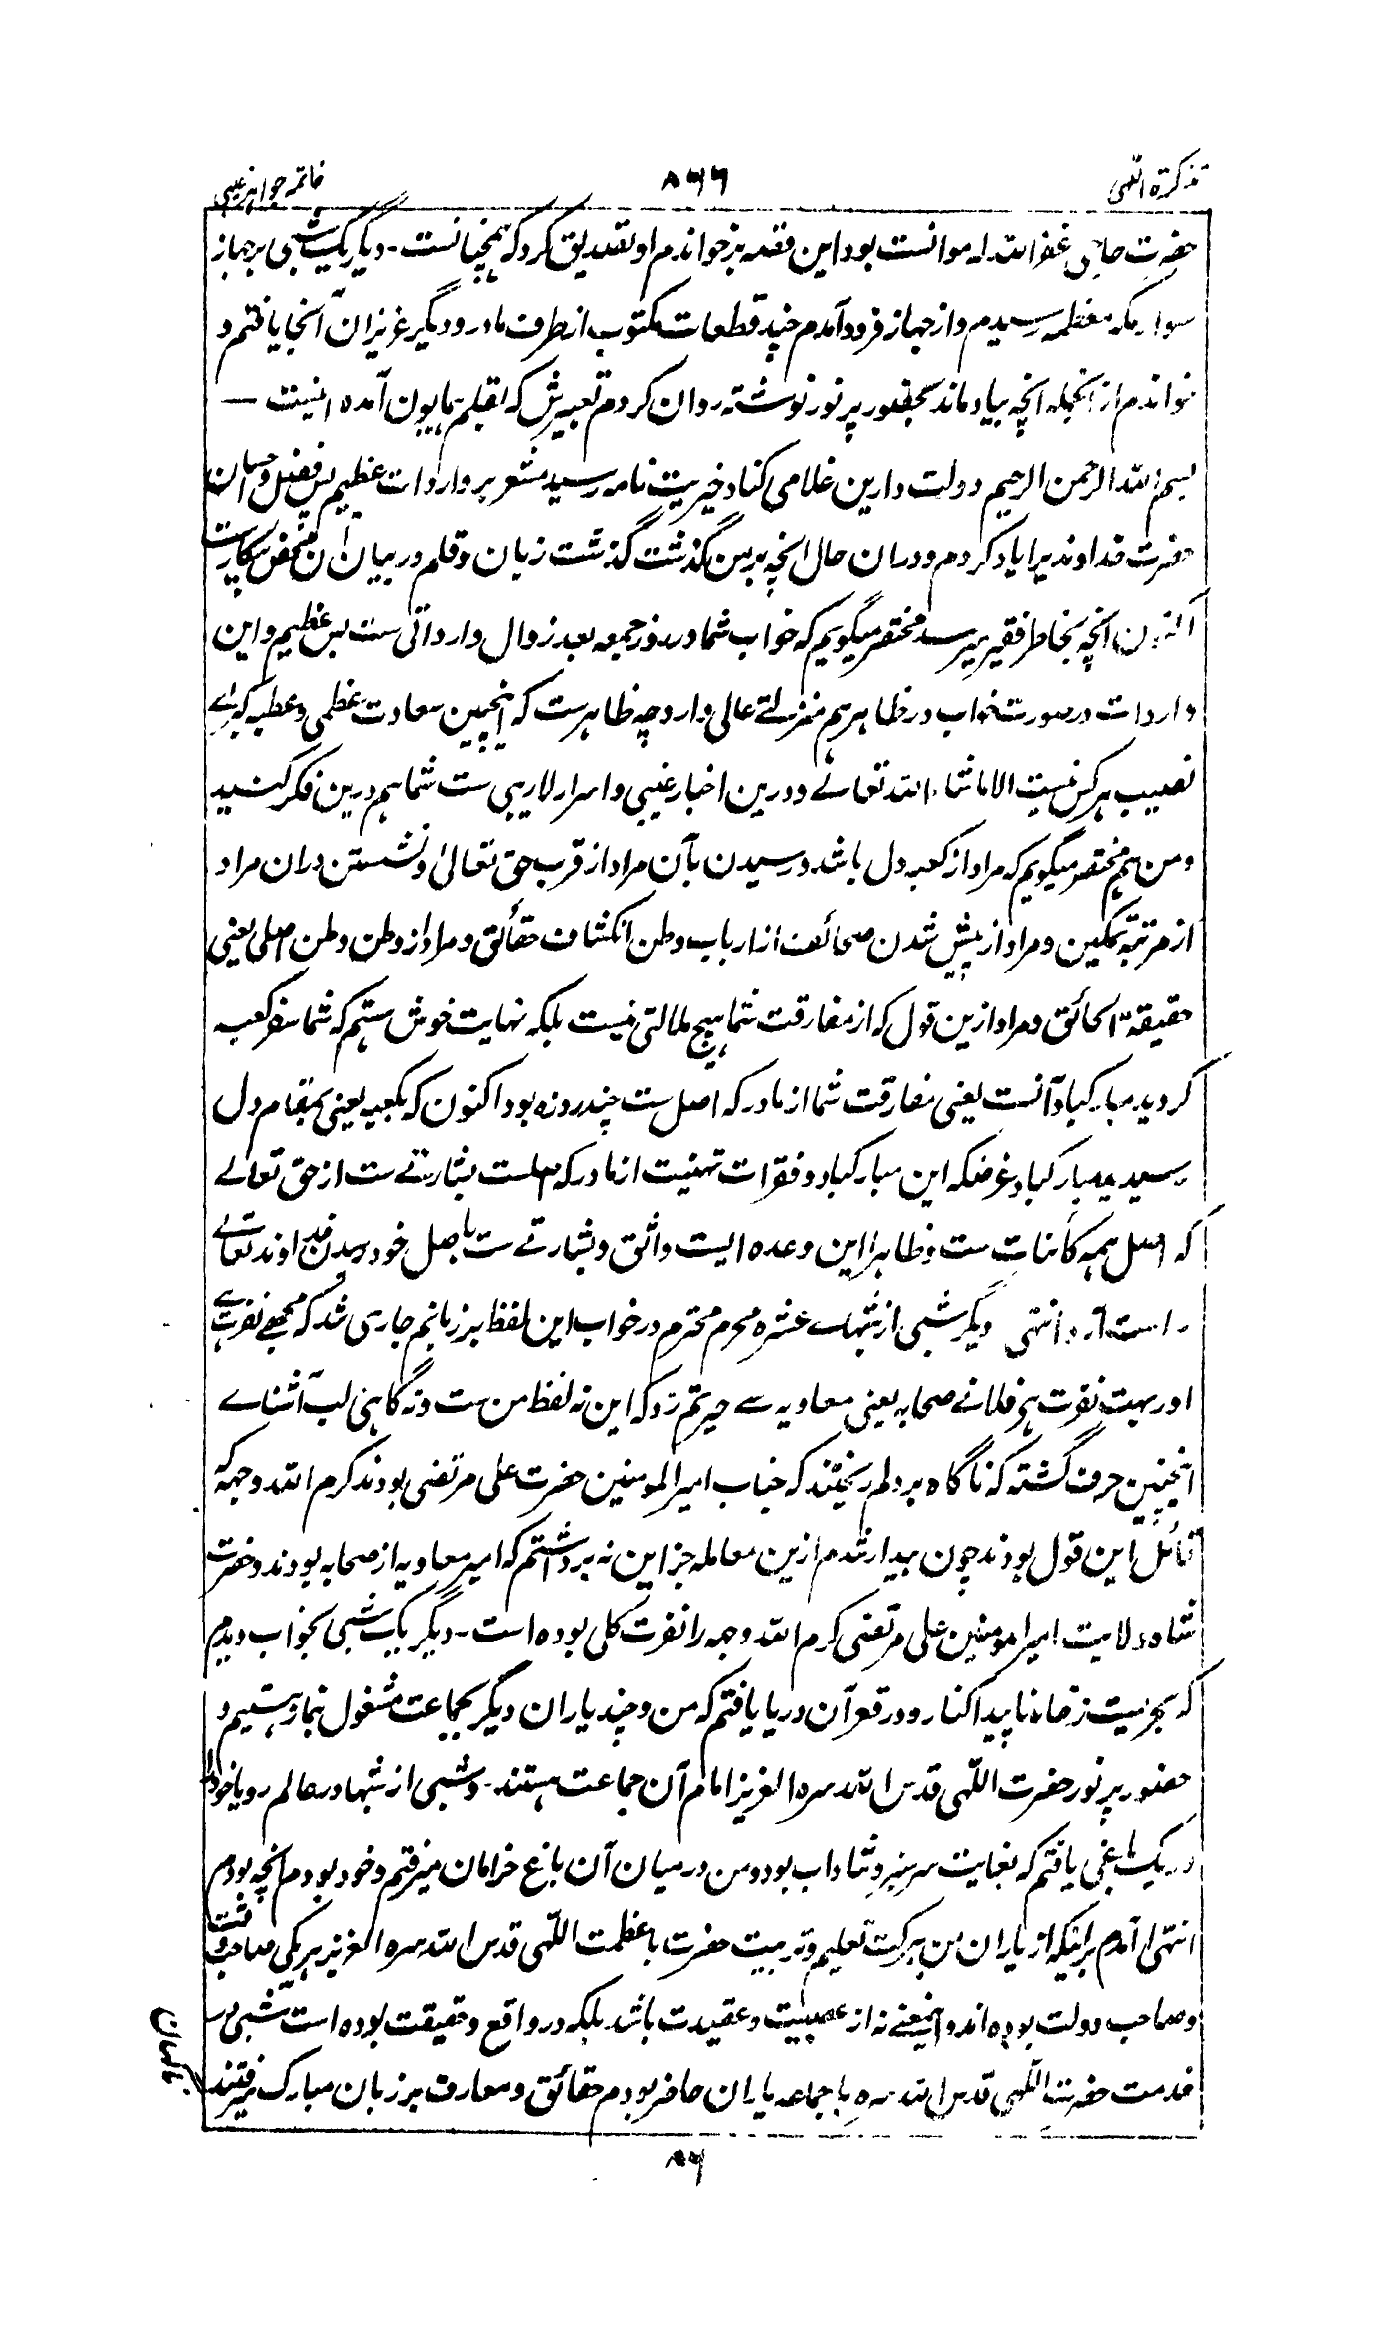 تذکرة اللّهی
۸۶۶
خاتمہ جواہر غیبی
حضرت حاجی غفر اللہ لہ موانست بود این قصہ بر خواندم او تصدیق کرد کہ ہمچنانست - دیگر یک شبی بر جہاز
سوار مکہ معظمہ رسیدم و از جہاز فرود آمدم چند قطعات مکتوب از طرف مادر و دیگر عزیزان آنجا یافتم و
خواندم از انجملہ آنچہ بیاد ماند بحضور پر نور نوشتہ روان کردم تعبیرش کہ بقلم ہمایون آمدہ اینست —
بسم اللہ الرحمن الرحیم دولت دارین غلامی کناد خیریت نامہ رسید مشعر بر واردات عظیم پس فضل و احسان
حضرت خداوند یرا یاد کردم و دران حال آنچہ بر من گذشت گذشت زبان و قلم در بیان آن محض بیکارست
اکنون آنچہ بخاطر فقیر میرسد مختصر میگویم کہ خواب شما در روز جمعہ بعد زوال وارداتی ست بس عظیم و این
واردات در صورت خواب در ظاہر ہم منزلتے عالی دارد چہ ظاہرست کہ اینچنین سعادت عظمی و عطیہ کبرے
نصیب ہر کس نیست الا ما شاء اللہ تعالے و درین اخبار غیبی و اسرار لاریبی ست شما ہم درین فکر کنید
و من ہم مختصر میگویم کہ مراد از کعبہ دل باشد و رسیدن بآن مراد از قرب حق تعالیٰ و نشستن دران مراد
از مرتبہ تمکین و مراد از پیش شدن صحائف از ارباب وطن انکشاف حقائق و مراد از وطن وطن اصلی یعنی
حقیقة الحقائق و مراد ازین قول کہ از مفارقت شما ہیچ ملالتی نیست بلکہ نہایت خوش ہستم کہ شما سفر کعبہ
کردید مبارکباد آنست یعنی مفارقت شما از مادر کہ اصل ست چند روزہ بود اکنون کہ بکعبہ یعنی بمقام دل
رسیدید مبارکباد غرضکہ این مبارکباد و فقرات تہنیت از مادر کہ اصلست بشارتے ست از حق تعالے
کہ اصل ہمہ کائنات ست و ظاہرا این وعدہ ایست واثق و بشارتے ست باصل خود رسیدن خداوند تعالے
راست آرد انتہی دیگر شبی از شبہاے عشرہ محرم محترم در خواب این لفظ بر زبانم جاری شد کہ مجھے نفرت ہے
اور بہت نفرت ہے فلانے صحابہ یعنی معاویہ سے حیرتم زد کہ این نہ لفظ من ست و نہ گاہی لب آشناے
اینچنین حرف گشتہ کہ ناگاہ بر دلم ریختند کہ جناب امیر المومنین حضرت علی مرتضی بودند کرم اللہ وجہہ کہ
قائل این قول بودند چون بیدار شدم ازین معاملہ جز این نہ برداشتم کہ امیر معاویہ از صحابہ بودند و حضرت
شاہ ولایت امیر المومنین علی مرتضی کرم اللہ وجہہ را نفرت کلی بودہ است - دیگر یک شبی بخواب دیدم
کہ بحریست زخار ناپیدا کنار و در قعر آن دریا یافتم کہ من و چند یاران دیگر بجماعت مشغول بنماز ہستیم و
حضور پر نور حضرت اللّہی قدس اللہ سرہ العزیز امام آن جماعت ہستند - و شبی از شبہا در عالم رویا خود را
در یک باغی یافتم کہ بغایت سرسبز و شاداب بود و من در میان آن باغ خرامان میرفتم و خود بودم آنچہ بودم
انتہی آمدم برینکہ از یاران من ببرکت تعلیم و تربیت حضرت با عظمت اللّہی قدس اللہ سرہ العزیز ہر یکی صاحب
و صاحب دولت بودہ اند و اینمعنے نہ از عصبیت و عقیدت باشد بلکہ در واقع و حقیقت بودہ است شبی در
خدمت حضرت اللّہی قدس اللہ سرہ با جماعہ یاران حاضر بودم حقائق و معارف بر زبان مبارک میرفتند
ناگہان